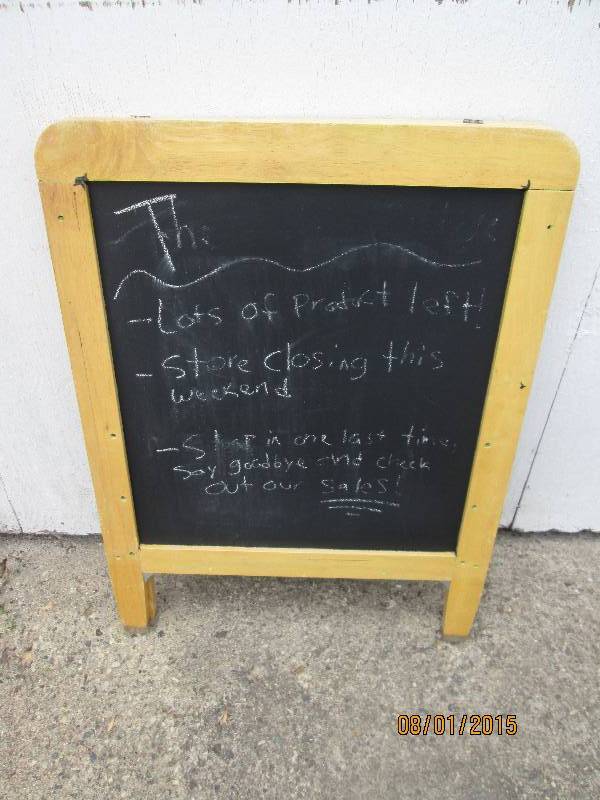 The
- Lots of Product left!
- Store Closing this
weekend
- Stop in one last time,
Say goodbye and check
out our Sales!
08/01/2015